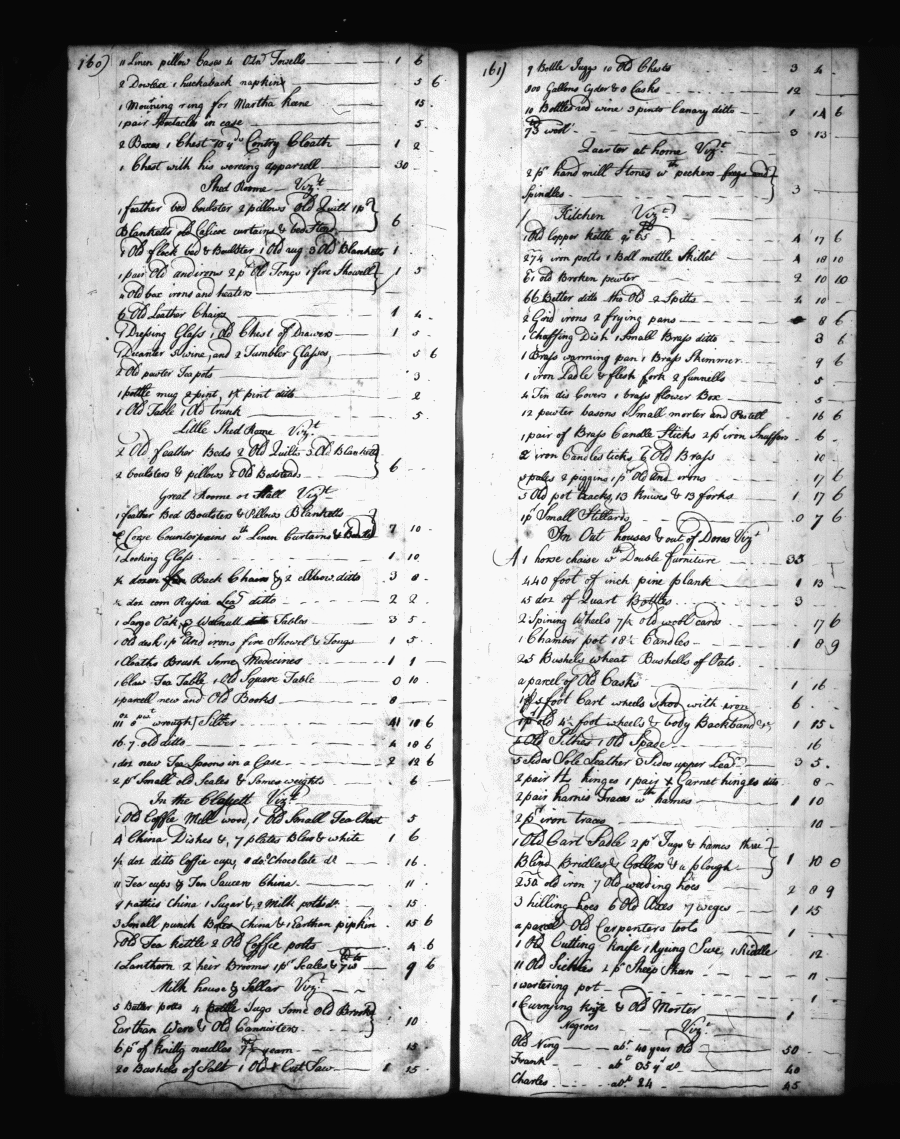 160)
11 Linen pillow Cases 4 Old Towells 1 6
2 Dowlace 1 huckaback napkins 5 6
1 Mourning ring for Martha Keene 15
1 pair Spectacles in case 5
2 Boxes 1 Chest 10 yds Contry Cloath 1 2
1 Chest with his waring apparell 30
Shed Roome Vizt
1 feather bed boulster 2 pillows Old Quilt 1 pr
Blanketts old Calicoe curtains & bed Stead 6
1 Old flock bed & Boulster 1 Old rug 3 Old Blanketts 1
1 pair Old andirons 2 pr Old Tongs 1 fire Showell 1 5
4 Old box irons and heaters
6 Old Leather Chairs 1 4
1 Dressing Glass 1 old Chest of Drawers 1 5
1 Decanter wine, and 2 Tumbler Glasses 5 6
2 Old pewter Tea pots 3
1 pottle mug 2 pint, 1 pint ditto 2
1 Old Table 1 Old trunk 5
Little Shed Rome Vizt
2 Old feather Beds 2 Old Quilts 3 Old Blanketts
2 boulsters & pillows 2 Old Bedsteads 6
Great Roome or Hall Vizt
1 feather Bed Boulsters & Pillows Blanketts
Corse Counterpains wth Linen Curtains & Bedstd 7 10
1 Looking Glass 1 10
½ dozen Back Chairs & 2 Elbow ditto 3 8
½ doz com Russea Lear ditto 2 2
1 Large Oak, 2 Walnutt Tables 3 5
1 Old desk 1 pr And irons fire Showel & Tongs 1 5
1 Cloaths Brush Some Medecines 1 1
1 Claw Tea Table 1 Old Square Table 0 10
1 parcell new and Old Books 8
111 oz pwt wrought Silver 41 10 6
16.7 old ditto 4 18 6
1 doz new Tea Spoons in a Case 2 12 6
2 pr Small old Scales & Some weights 6
In the Clossett Vizt
1 Old Coffee Mill wood, 1 Old Small Tea Chest 5
4 China Dishes &, 7 plates Blew & white 1 6
½ doz ditto Coffee cups, 8 do Chocolate do 16
11 Tea cups & Ten Saucers China 11
4 patties China 1 Sugar &, 2 Milk potts do 15
3 Small punch Boles China & 1 Earthan pipkin 15 6
Old Tea kettle 2 Old Coffee potts 4 6
1 Lanthorn 2 heir Brooms 1 pr Scales & wts 9 6
Milk house & Sellar Vizt
5 Butter potts 4 Bottle Jugs Some old Broken
Earthan Ware & Old Cannisters 10
6 pr of knitting needles yearn 15
20 Bushels of Salt 1 Old X Cut Saw 1 15
161)
9 Bottle Juggs 10 Old Chests 3 4
800 Gallons Cyder & 8 Casks 12
10 Bottles red wine 3 pints Canary ditto 1 14 6
73 wool 3 13
Quarter at home Vizt
2 pr hand mill Stones wth peckers
Spindles 3
Kitchen Vizt
1 Old Copper kettle qt 65 4 17 6
274 iron potts 1 Bell mettle Skillet 4 18 10
61 old Broken pewter 2 10 10
66 Better ditto the Old 2 Spitts 4 10
2 Grid irons 2 frying pans 8 6
1 Chaffing Dish 1 Small Brass ditto 3 6
1 Brass warming pan 1 Brass Skimmer 9 6
1 iron Ladle & flesh fork 2 funnells 5
4 Tin dis Covers 1 brass flower Box 5
12 pewter basons 1 Small morter and Pestell 16 6
1 pair of Brass Candle Sticks 2 pr iron Snuffers 6
2 iron Candlesticks & Old Brass 10
3 pales 2 piggins 1 pr Old And irons 17 6
3 Old pot racks, 13 knives & 13 forks 1 17 6
1 pr Small Stillards 0 7 6
In Out houses & out of Dores Vizt
1 horse chaise wth Double furniture 35
440 foot of inch pine plank 1 13
45 doz of Quart Bottles 3
2 Spining Wheels 7 pr old wool cards 17 6
1 Chamber pot 18 ½ Candles 1 8 9
25 Bushels wheat Bushells of Oats
a parcel of Old Casks 1 16
1 pr foot Cart wheels shod with iron 6
1 pr old 4 foot wheels & body Backband &c 1 15
2 Old Sithes 1 Old Spade 16
5 Sides Sole Leather 3 Sides upper Lear 3 5
2 pair H hinges 1 pair X Garnet hinges dito 8
2 pair harnis Traces wth hames 1 10
2 pr iron traces 10
1 Old Cart Sadle 2 pr Tugs & hames three
Blind Bridles & Collers & a plough 1 10 0
250 old iron 7 Old weeding hoes 2 8 9
3 hilling hoes 6 Old Axes 7 weges 1 15
a parcel Old Carpenters tools 1
1 Old Cutting knife 1 Ryeing Sive 1 Riddle 12
11 Old Sickles 2 pr Sheep Shears 11
1 watering pot 1
1 Currying knife & Old Morter 1
Negroes Vizt
Old Ning abt 40 year Old 50
Frank abt 35 yr do 40
Charles abt 24 45